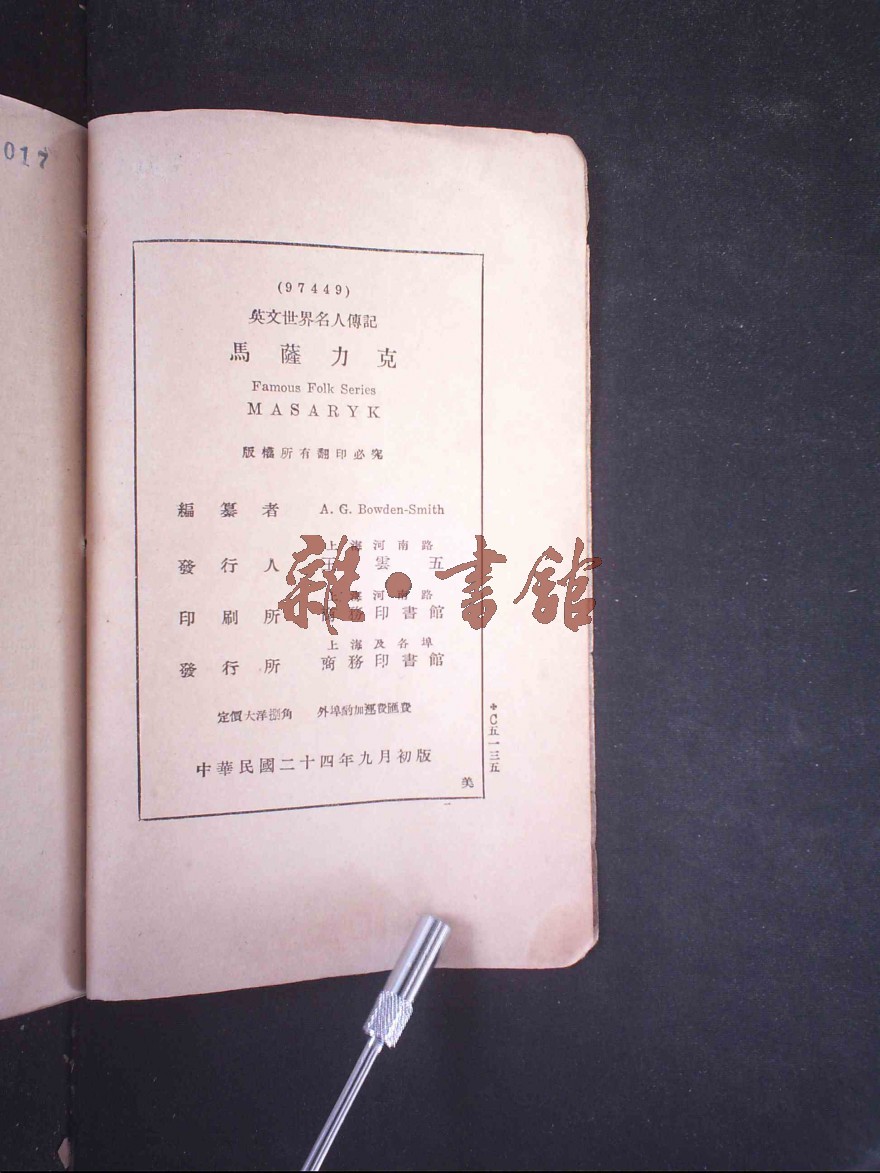 017
(97449)
英文世界名人傳記
馬薩力克
Famous Folk Series
MASARYK
版權所有翻印必究
編纂者 A. G. Bowden-Smith
上海河南路
發行人 王雲五
上海河南路
印刷所 商務印書館
上海及各埠
發行所 商務印書館
定價大洋捌角 外埠酌加運費匯費
中華民國二十四年九月初版
美
＊C五一三五
雜·書館